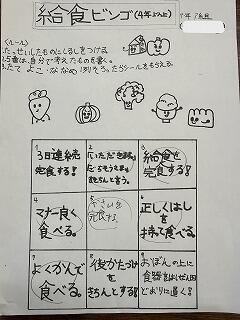 給食ビンゴ(4年2組)
<ルール>
1.たっせいしたものにしるしをつける。
2.5番は、自分で考えたものを書く。
3.たて、よこ、ななめ1列そろったらシールをもらえる。
1
3日連続
完食する!
2
いただきます、
ごちそうさまを
きちんと言う。
3
給食を
完食する!
4
マナー良く
食べる。
5
完食する
6
正しくはしを
持って食べる。
7
よくかんで
食べる。
8
後かたづけを
きちんとする!
9
おぼんの上に
食器を
どおりに置く!